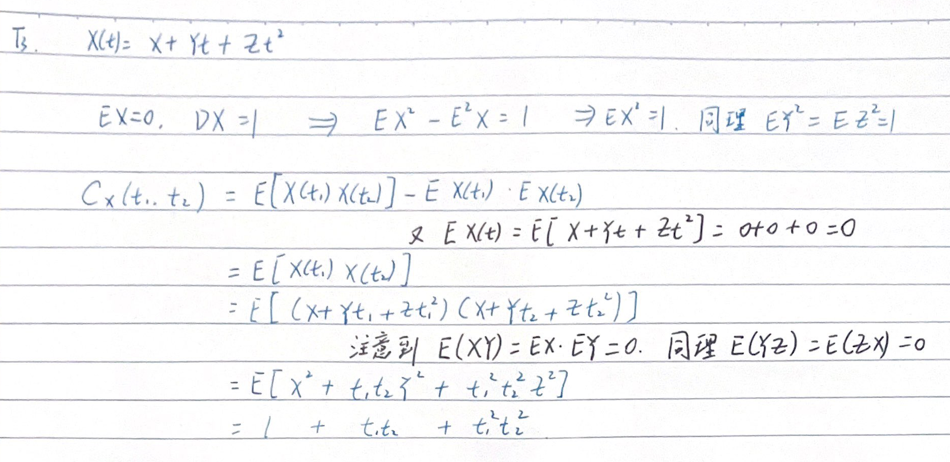 T3. X(t)= X + Yt + Zt²
EX=0. DX=1 ⇒ EX² - E²X = 1 ⇒ EX²=1. 同理 EY² = EZ²=1
Cx(t₁, t₂) = E[X(t₁)X(t₂)] - E X(t₁) · E X(t₂)
又 E X(t) = E[X+Yt + Zt²] = 0+0+0=0
= E[X(t₁) X(t₂)]
= E[(X+Yt₁+Zt₁²)(X+Yt₂+Zt₂²)]
注意到 E(XY)=EX·EY=0. 同理 E(YZ)=E(ZX)=0
= E[X² + t₁t₂Y² + t₁²t₂²Z²]
= 1 + t₁t₂ + t₁²t₂²